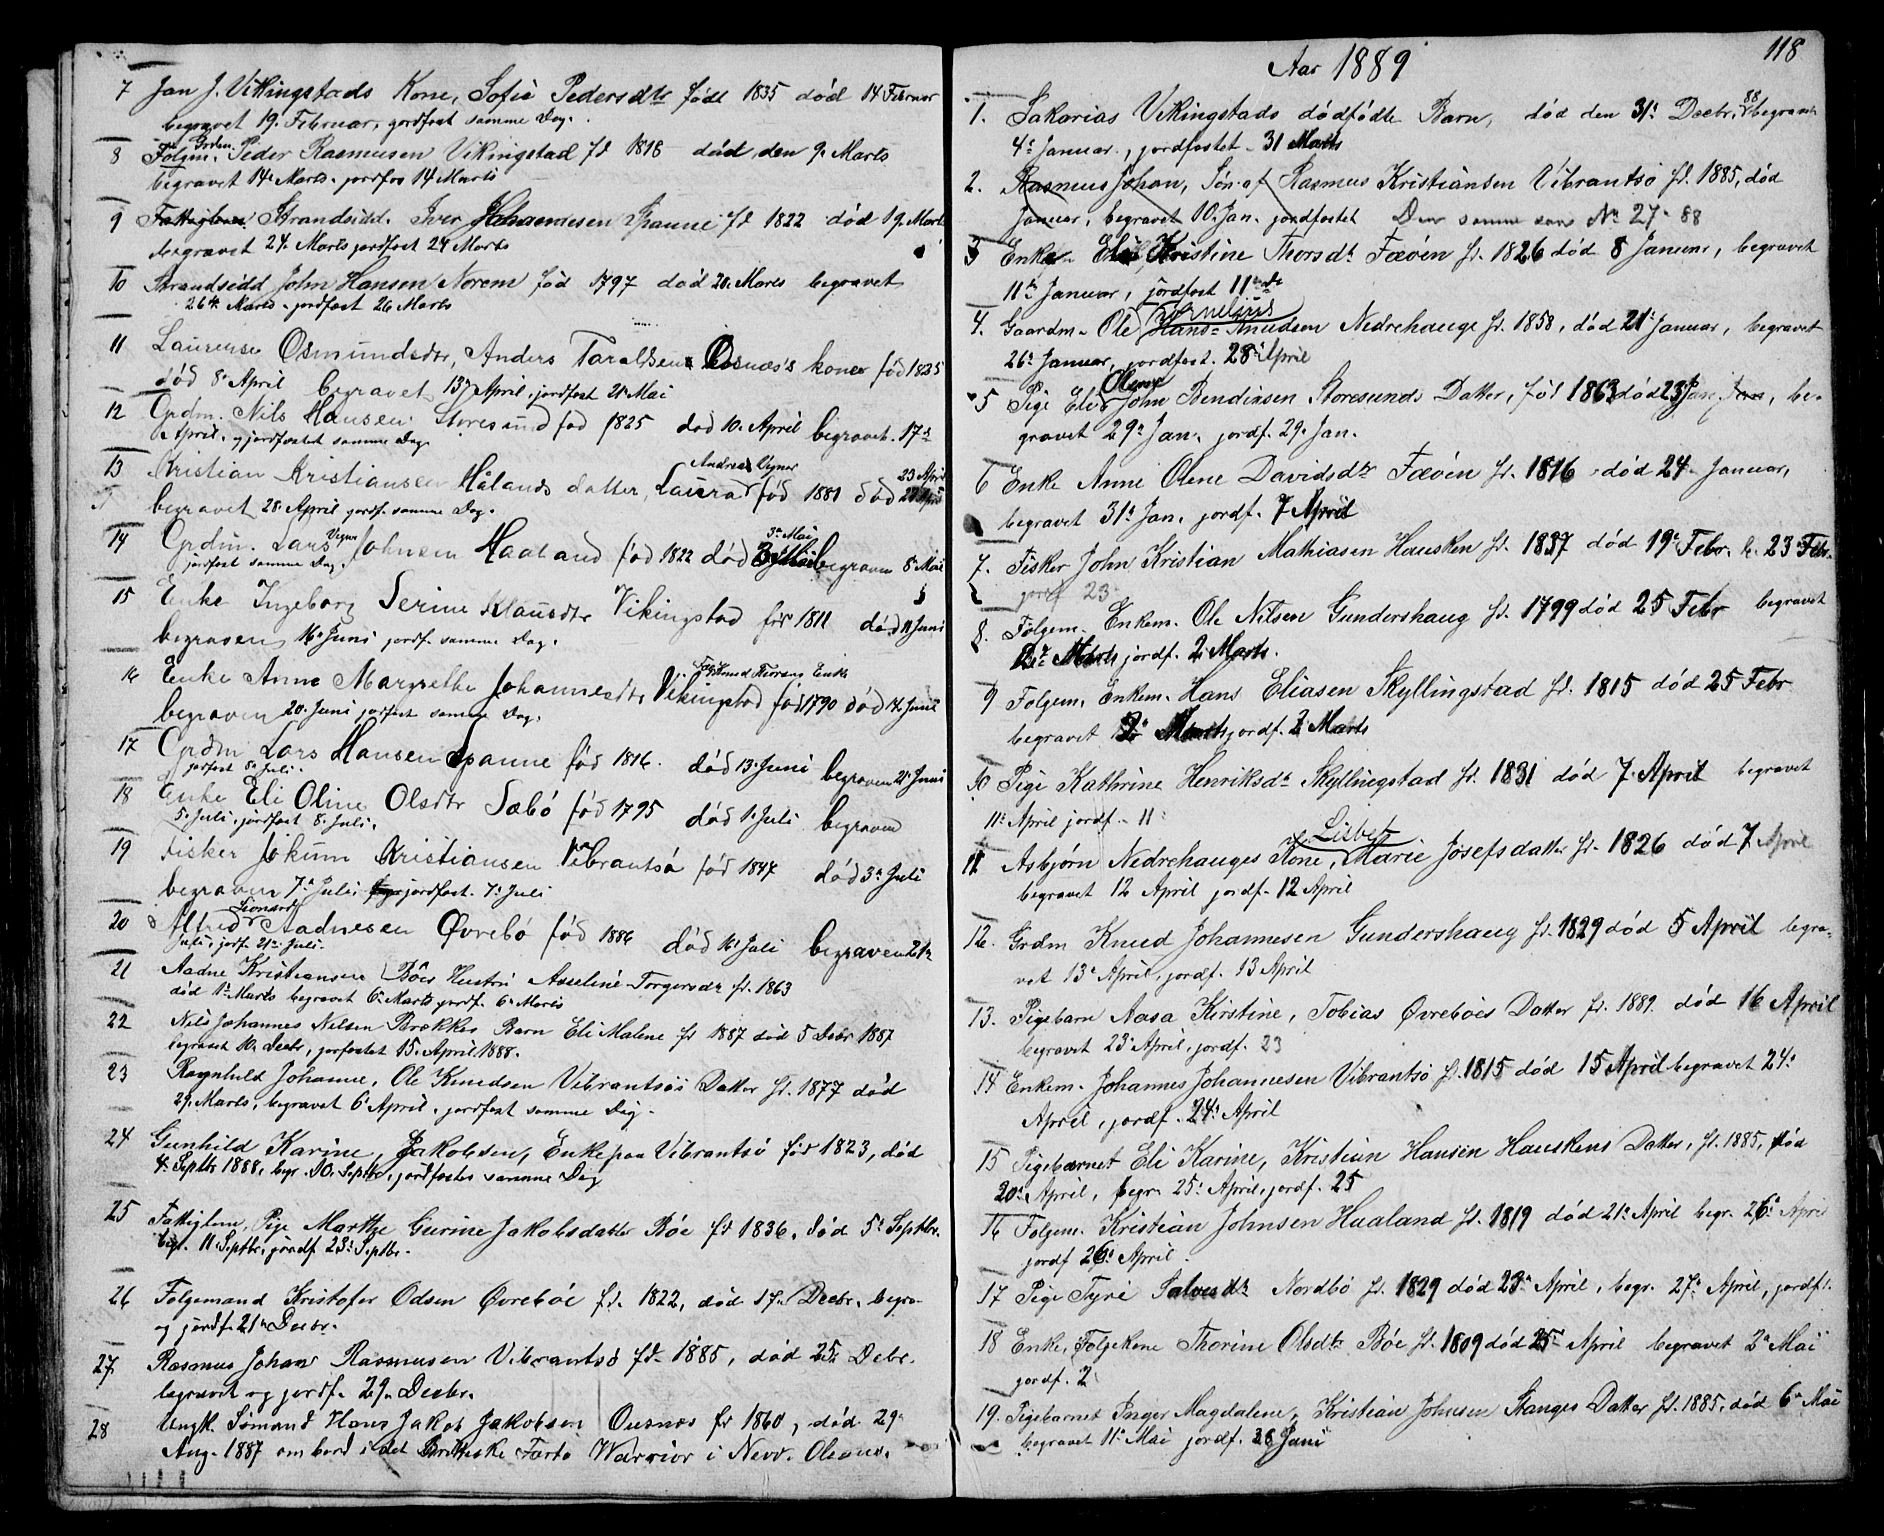 7 Jan J. Vikingstads Kone, Sofie Pedersdtr född 1835 död 14 Februar
begravet 19. Februar, jordfast samme Dag.
Grdm.
8 Følgm. Peder Rasmusen Vikingstad fd 1818 död, den 9. Marts
begravet 14. Marts. jordfas 14 Marts
9 Strandsidd. Iver Johannesen Spanne fd 1822 död 19. Marts
begravet 24. Marts jordfast 24 Marts
10 Strandsidd John Hansen Norem föd 1797 död 20. Marts begravet
26de Marts. jordfast 26 Marts
11 Laurense Osmundsdtr, Anders Taraldsens Osnæs's kone föd 1825
död 8. April begravet 13. April, jordfast 21 Mai
12 Grdm. Nils Hansen Storesund föd 1825 död 10. April begravet. 17de
April. jordfastet samme Dag.
Andrea Vigner 23 April
13 Kristian Kristiansen Hålands datter, Laura föd 1881 död
begravet 28. April jordf. samme Dag.
Vigner 3. Mai
14 Grdm. Lars Johnsen Haaland föd 1822 död begraven 8. Mai
jordfast samme Dag.
15 Enke Ingeborg Serine Klausdtr Vikingstad föd 1811 död 11 Juni
begraven 16. Juni jordf. samme Dag.
Knud Enke
16 Enke Anne Margrethe Johannesdtr Vikingstad föd 1790 död 14 Juni
begraven 20. Juni jordfast samme Dag.
17 Grdm Lars Hansen Spanne föd 1816. död 13. Juni begraven 21. Juni
jorfast 8. Juli.
18 Enke Eli Oline Olsdtr Sæbö föd 1795 död 1. Juli begraven
5. Juli, jordfast 8. Juli.
19 Fisker Jokum Kristiansen Vibrantsö föd 1847 död 3. Juli
begraven 7. Juli, jordfast. 7. Juli
Leonard
20 Alfred Aadnesen Øvrebö föd 1886 död 16. Juli begraven 21de
Juli, jordf. 21. Juli.
21 Aadne Kristiansen Böes Hustru Asseline Torgersdr fd. 1863
död 1. Marts begravet 6. Marts jordf. 6. Marts
22 Nils Johannes Nilsen Brækkes Barn Eli Malene fd 1887 död 5 Debr 1887
begravet 10. Decbr, jorfastet 15. April 1888.
23 Ragnhild Johanne, Ole Knudsen Vibrantsös Datter fd. 1877 död
29. Marts, begravet 6. April, jordfast samme Dag.
24 Gunhild Karine, Jakobsen, Enke paa Vibrantsö föd 1823, död
4. Septbr 1888, begr. 10. Septbr, jordfastes samme Dag
25 Fattiglem, Pige Marthe Gurine Jakobsdatter Böe fd 1836, död 5. Septbr.
begr. 11. Septbr, jordf 23. Septbr.
26 Følgemand Kristofer Odsen Øvreböe fd. 1822, död 17. Decbr. begra-
og jordf. 21. Decbr.
27. Rasmus Johan Rasmusen Vibrantsö fd. 1885, död 25. Debr.
begravet og jordf. 29. Decbr.
28 Ungk. Sömand Hans Jakob Jakobsen Ousnæs fd 1860, död 29.
Aug. 1887 om bord i det Brittiske Fartö Warrior i Newv. Oleans.
Aar 1889
118
88
1. Sakarias Vikingstads dödfödte Barn, död den 31. Decbr, begravet
4. Januar, jordfastet. 31 Marts
2. Rasmus Johan, Sön af Rasmus Kristiansen Vibrantsö fd. 1885, död
Januar, begravet 10. Jan. jordfastet Den samme som No 27. 88
3 Enke Kristine Thorsdr Fæöen fd. 1826 död 8 Januar, begravet
11te Januar, jordfast 11 Marts
Kornelius
4. Gaardm. Ole Knudsen Nedrehauge fd. 1858, död 21. Januar, begravet
26. Januar, jordfast. 28. April
Olene
5 Pige Elis John Bendiksen Storesunds Datter, föd 1863 död 23 Jan, be-
gravet 29. Jan. jordf. 29. Jan.
6 Enke Anne Olene Davidsdtr Fæöen fd. 1816 död 24. Januar,
begravet 31. Jan. jordf. 7 April
7. Fisker John Kristian Mathiasen Hausken fd. 1837 död 19. Febr. b. 23 Febr.
jordf 23
8. Følgem. Enkem. Ole Nilsen Gundershaug fd. 1799 död 25 Febr begravet
Marts jordf. 2 Marts.
9 Folgem. Enkem. Hans Eliasen Skyllingstad fd. 1815 död 25 Febr
begravet 2. Marts jordf. 2 Marts
10 Pige Kathrine Henriksdr Skyllingstad fd. 1831 död 7. April begravet
11. April jordf. 11.
Lisbet
11 Asbjørn Nedrehauges Kone, Marie Josefsdatter fd. 1826 död 7 April
begravet 12 April jordf. 12 April
12. Grdm Knud Johannesen Gundershaug fd. 1829 död 5 April begra-
vet 13. April, jordf. 13 April
13. Pigebarn Aasa Kirstine, Tobias Øvreböes Datter fd. 1889. död 16 April
begravet 23. April, jordf. 23
14 Enkem. Johannes Johannesen Vibrantsö fd. 1815 död 15 April begravet 24.
April, jordf. 24. April
15 Pigebarnet Eli Karine, Kristian Hansen Hauskens Datter, fd. 1885, död
20. April, begr. 25. April, jordf. 25
16 Folgem. Kristian Johnsen Haaland fd. 1819 död 21. April begr. 26. April
jordf 26. April.
17 Pige Tyri Salvesdr Nordbö fd. 1829 död 23. April, begr. 27. April, jordf.
18 Enke, Følgekone Thorine Olsdtr Böe fd. 1809 död 25 April begravet 2. Mai
jordf. 2
19. Pigebarnet Inger Magdalene, Kristian Johnsen Stanges Datter fd. 1885. död 6. Mai
begravet 11. Mai jordf. 26 Juni